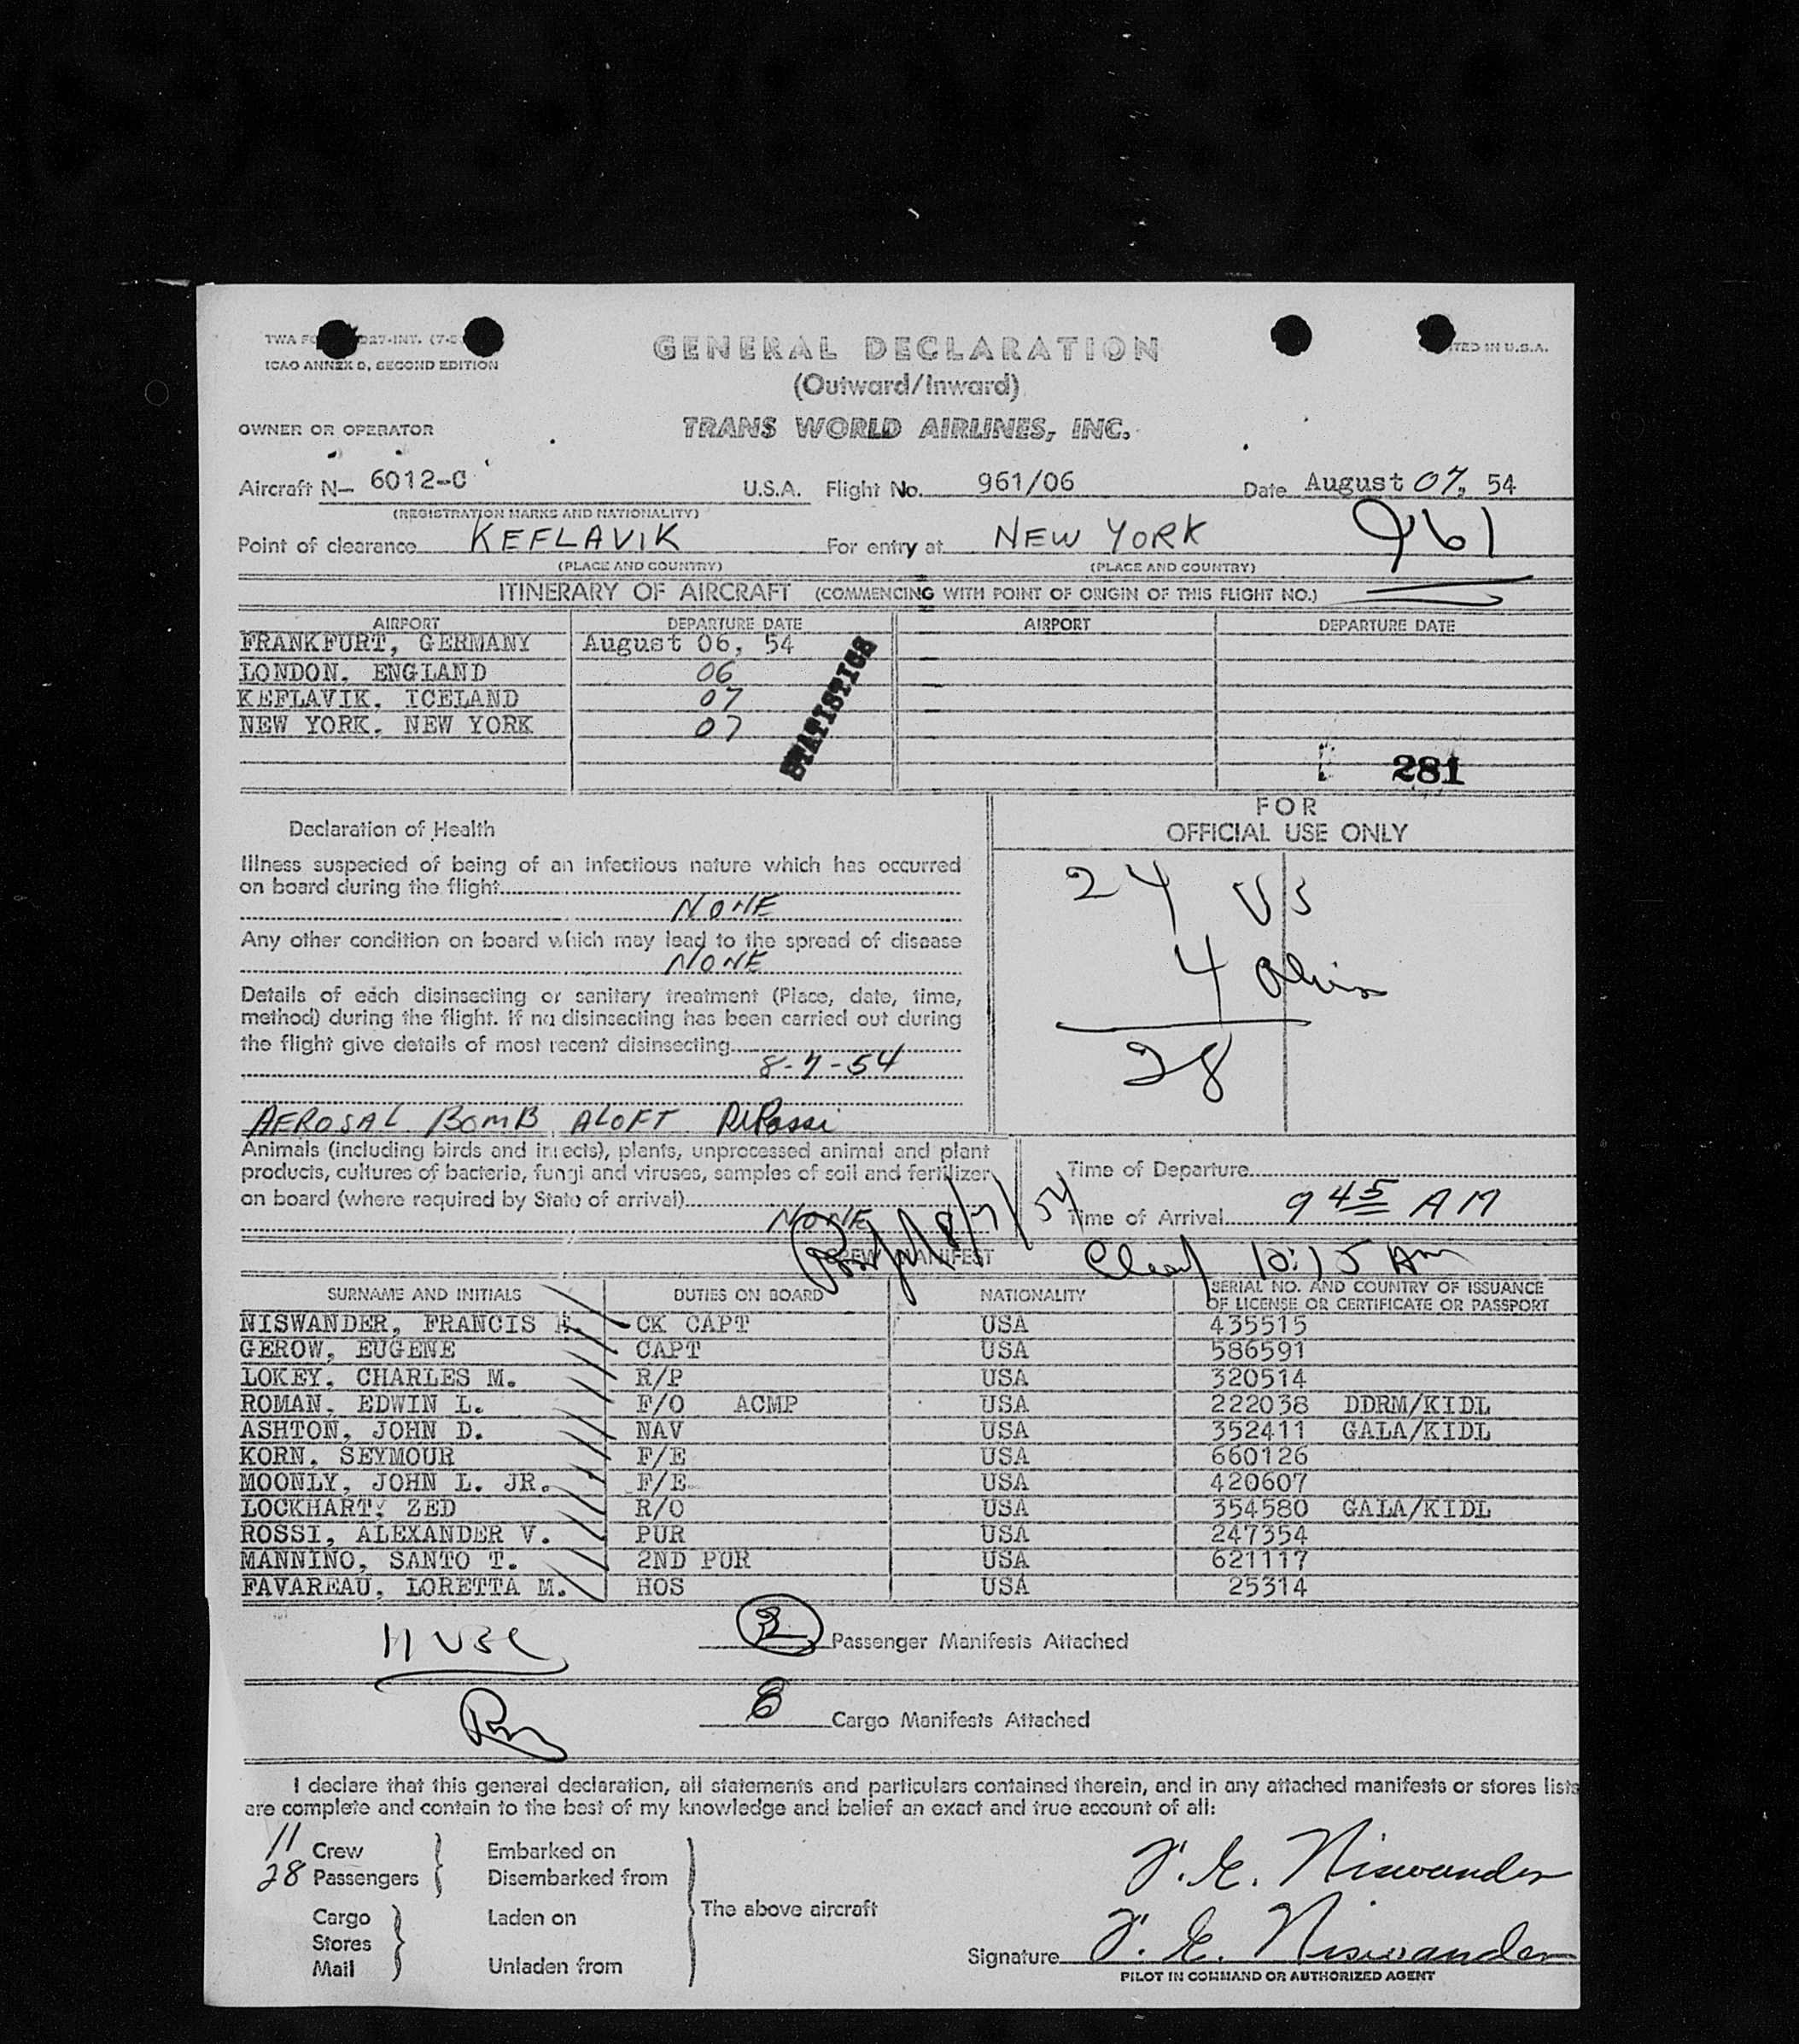 ICAO ANNEX 9, SECOND EDITION
GENERAL DECLARATION
(Outward/Inward)
TRANS WORLD AIRLINES, INC.
OWNER OR OPERATOR
Aircraft N— 6012-C U.S.A. Flight No. 961/06 Date August 07, 54
(REGISTRATION MARKS AND NATIONALITY)
961
Point of clearance KEFLAVIK For entry at NEW YORK
(PLACE AND COUNTRY) (PLACE AND COUNTRY)
ITINERARY OF AIRCRAFT (COMMENCING WITH POINT OF ORIGIN OF THIS FLIGHT NO.)
AIRPORT DEPARTURE DATE AIRPORT DEPARTURE DATE
FRANKFURT, GERMANY August 06, 54
LONDON, ENGLAND 06
KEFLAVIK, ICELAND 07
NEW YORK, NEW YORK 07
STATISTICS
281
FOR
OFFICIAL USE ONLY
24 US
4 Alien
28
Declaration of Health
Illness suspected of being of an infectious nature which has occurred
on board during the flight
NONE
Any other condition on board which may lead to the spread of disease
NONE
Details of each disinsecting or sanitary treatment (Place, date, time,
method) during the flight. If no disinsecting has been carried out during
the flight give details of most recent disinsecting
8-7-54
AEROSAL BOMB ALOFT
Animals (including birds and insects), plants, unprocessed animal and plant
products, cultures of bacteria, fungi and viruses, samples of soil and fertilizer
on board (where required by State of arrival)
NONE
8/7/54
Time of Departure
Time of Arrival 9 45 AM
Clear 10:15 AM
CREW MANIFEST
SURNAME AND INITIALS DUTIES ON BOARD NATIONALITY SERIAL NO. AND COUNTRY OF ISSUANCE
OF LICENSE OR CERTIFICATE OR PASSPORT
NISWANDER, FRANCIS E. CK CAPT USA 435515
GEROW, EUGENE CAPT USA 586591
LOKEY, CHARLES M. R/P USA 320514
ROMAN, EDWIN L. F/O ACMP USA 222038 DDRM/KIDL
ASHTON, JOHN D. NAV USA 352411 GALA/KIDL
KORN, SEYMOUR F/E USA 660126
MOONLY, JOHN L. JR. F/E USA 420607
LOCKHART, ZED R/O USA 354580 GALA/KIDL
ROSSI, ALEXANDER V. PUR USA 247354
MANNINO, SANTO T. 2ND PUR USA 621117
FAVAREAU, LORETTA M. HOS USA 25314
11 USC
2 Passenger Manifests Attached
Cargo Manifests Attached
I declare that this general declaration, all statements and particulars contained therein, and in any attached manifests or stores lists
are complete and contain to the best of my knowledge and belief an exact and true account of all:
11 Crew Embarked on
28 Passengers Disembarked from
The above aircraft
Cargo Laden on
Stores
Mail Unladen from
F. E. Niswander
Signature F. E. Niswander
PILOT IN COMMAND OR AUTHORIZED AGENT